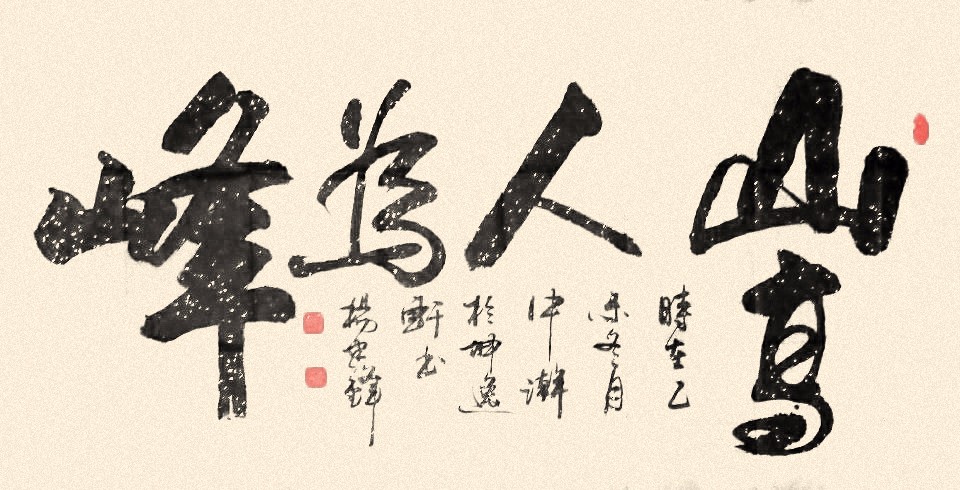 山高人為峰
時在乙
未冬月
仲
於坤逸
軒書
楊忠鋒